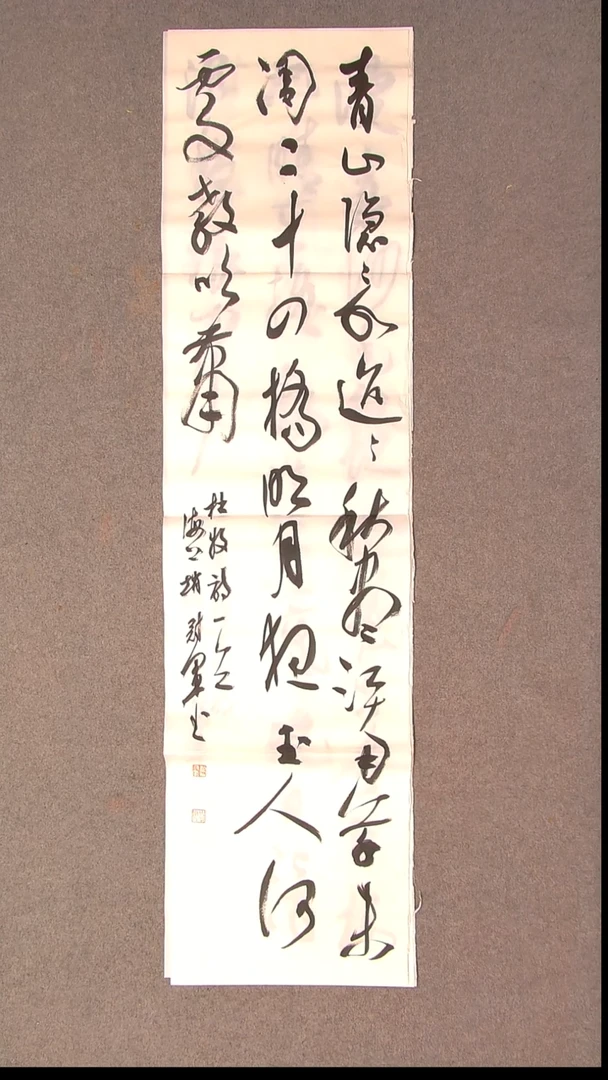 青山隱〻水迢〻秋盡江南草未
凋二十四橋明月夜玉人何
處教吹簫
杜牧詩一首
海上軍書